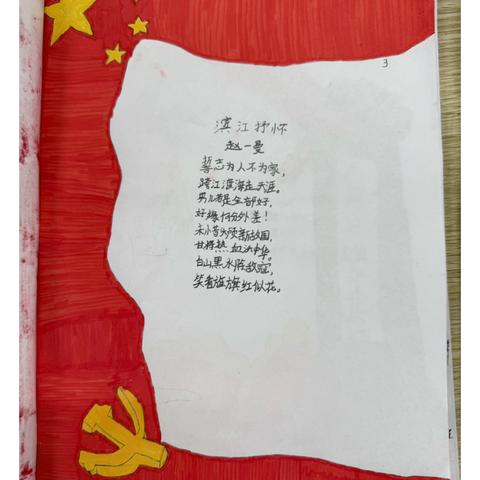 3
滨江抒怀
赵一曼
誓志为人不为家，
跨江渡海走天涯。
男儿若是全部好，
好缘何分外差！
未惜头颅新故国，
甘将热血沃中华。
白山黑水除敌寇，
笑看旌旗红似花。